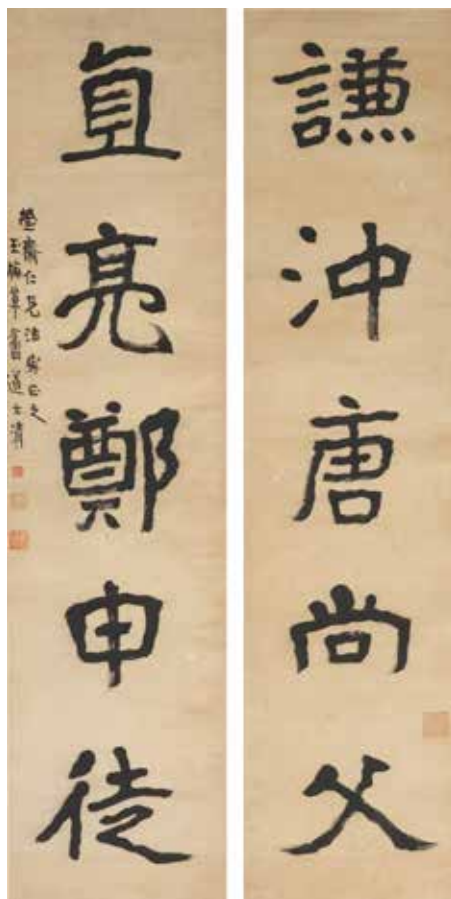 謙沖唐尚父
直亮鄭申徒
齋仁兄法家正之
玉梅華盦道士清